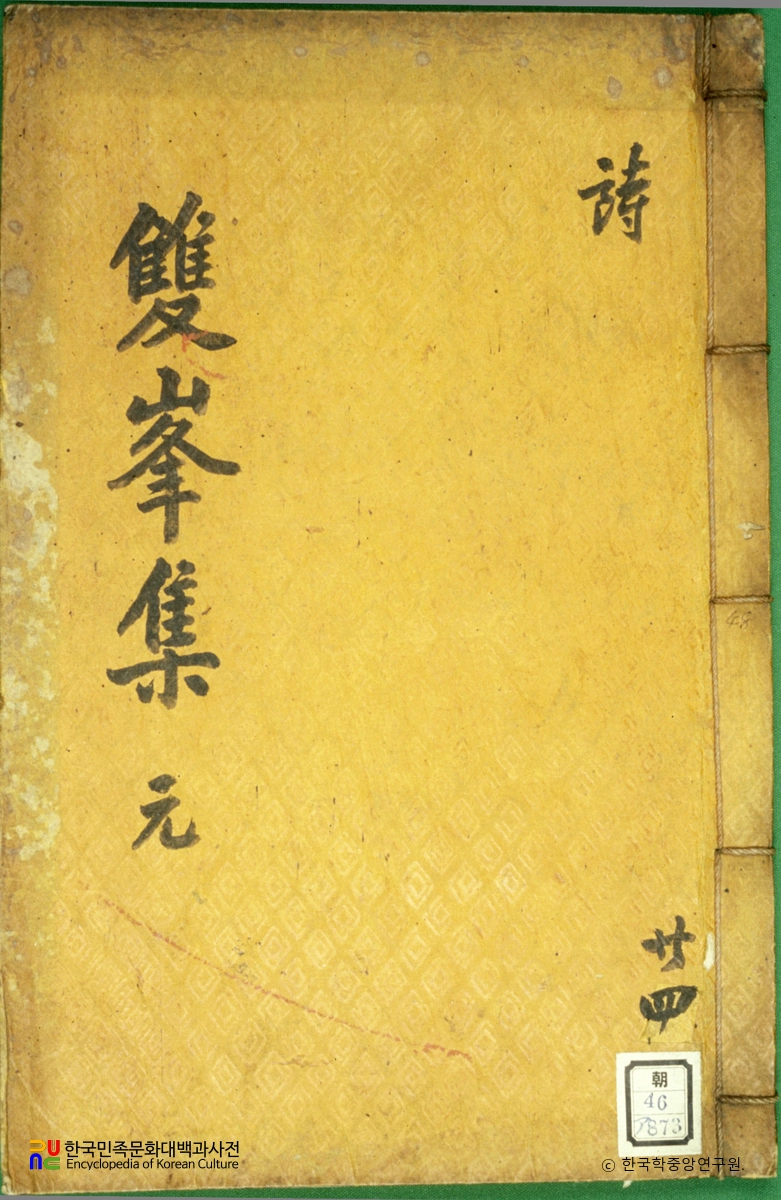 詩
雙峯集 元
廿四
48
朝
46
873
한국민족문화대백과사전
Encyclopedia of Korean Culture
ⓒ 한국학중앙연구원.